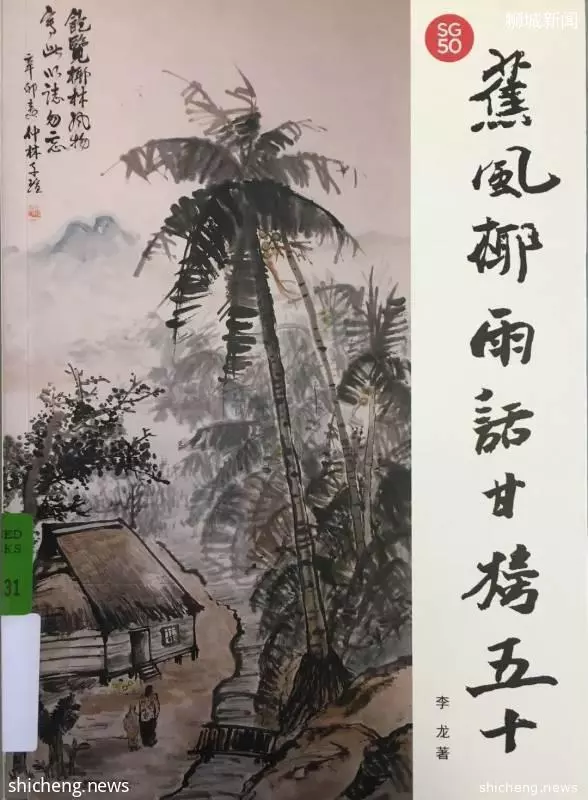 飽覽椰林風物
寫此以誌勿忘
辛卯夏仲林子
SG
50
狮城新闻
蕉風椰雨話甘榜五十
李龙著
ED
KS
31
shicheng.news
shicheng.news